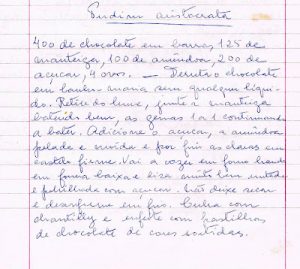 Pudim aristocrata
400 de chocolate em barras, 125 de
manteiga, 100 de amêndoa, 200 de
açucar, 4 ovos. — Derreta o chocolate
em banho-maria sem qualquer liqui-
do. Retire do lume, junte a manteiga
batendo bem, as gemas 1 a 1 continuando
a bater. Adicione o açucar, a amêndoa
pelada e moida e por fim as claras em
castelo firme. Vai a cozer em forno brando
em forma baixa e lisa muito bem untada
e polvilhada com açucar. Não deixe secar
e desenforme em frio. Cubra com
chantilly e enfeite com pastilhas
de chocolate de cores sortidas.